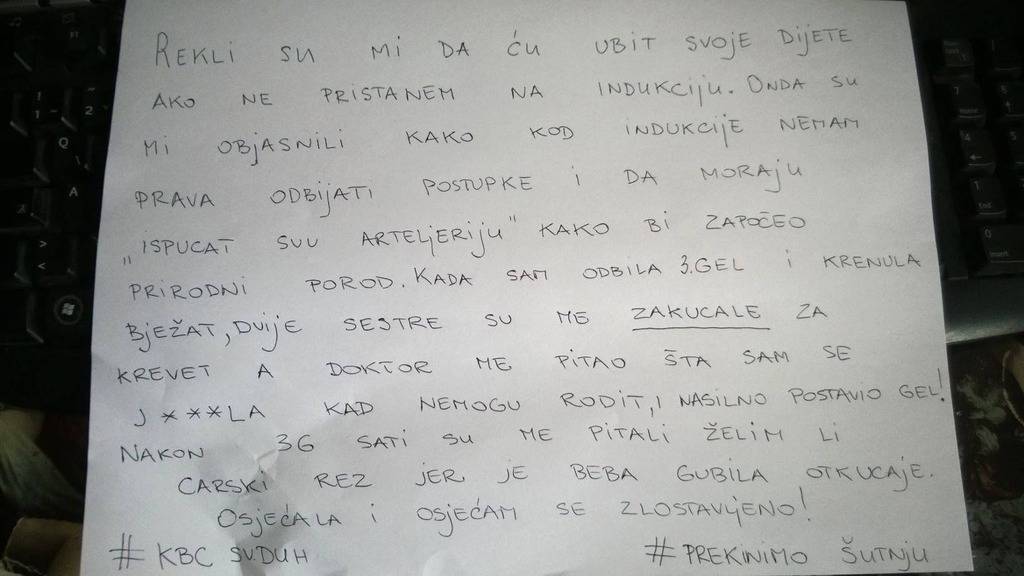 REKLI SU MI DA ĆU UBIT SVOJE DIJETE
AKO NE PRISTANEM NA INDUKCIJU. ONDA SU
MI OBJASNILI KAKO KOD INDUKCIJE NEMAM
PRAVA ODBIJATI POSTUPKE I DA MORAJU
„ISPUCAT SVU ARTELJERIJU" KAKO BI ZAPOČEO
PRIRODNI POROD. KADA SAM ODBILA 3.GEL I KRENULA
BJEŽAT, DVIJE SESTRE SU ME ZAKUCALE ZA
KREVET A DOKTOR ME PITAO ŠTA SAM SE
J***LA KAD NEMOGU RODIT, I NASILNO POSTAVIO GEL!
NAKON 36 SATI SU ME PITALI ŽELIM LI
CARSKI REZ JER JE BEBA GUBILA OTKUCAJE.
OSJEĆALA I OSJEĆAM SE ZLOSTAVLJENO!
# KBC SV.DUH # PREKINIMO ŠUTNJU